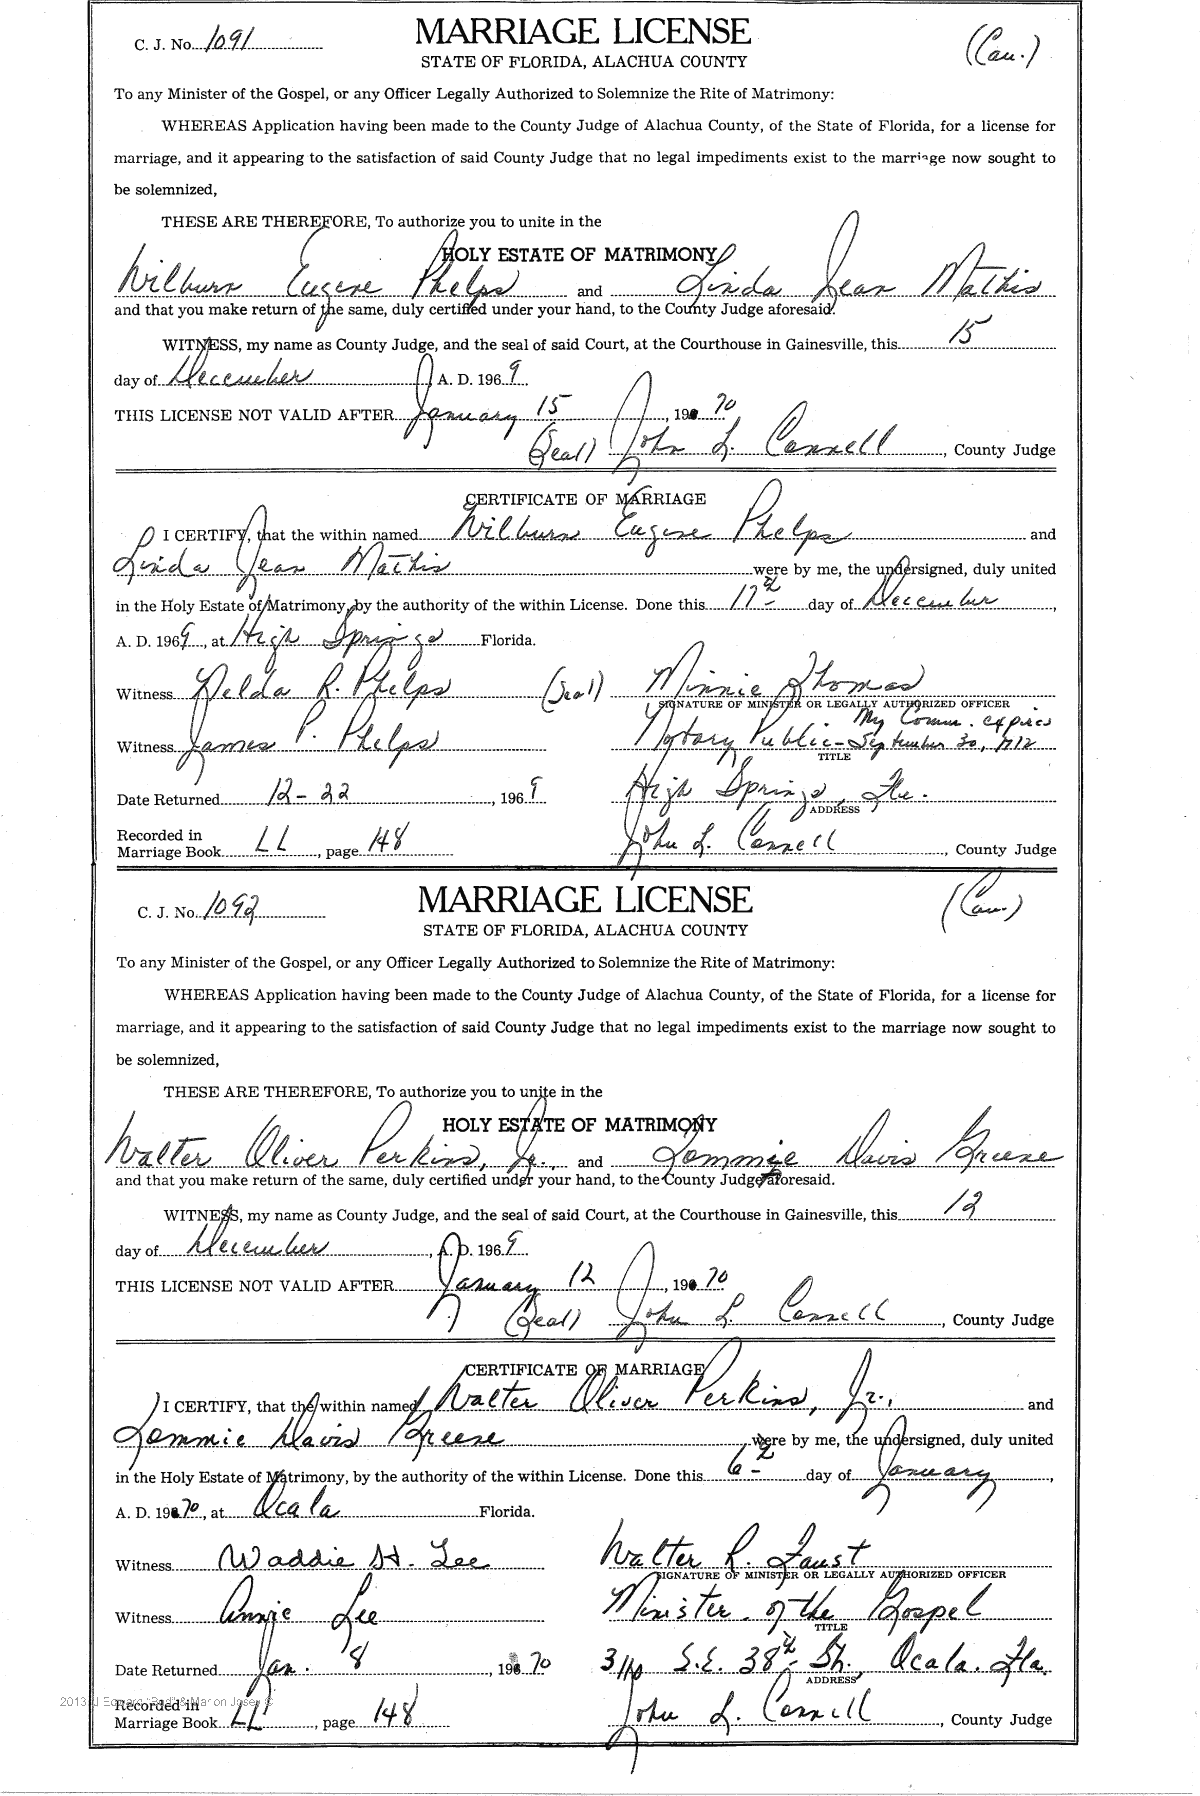 C. J. No. 1091
MARRIAGE LICENSE
(Cau.)
STATE OF FLORIDA, ALACHUA COUNTY
To any Minister of the Gospel, or any Officer Legally Authorized to Solemnize the Rite of Matrimony:
WHEREAS Application having been made to the County Judge of Alachua County, of the State of Florida, for a license for
marriage, and it appearing to the satisfaction of said County Judge that no legal impediments exist to the marriage now sought to
be solemnized,
THESE ARE THEREFORE, To authorize you to unite in the
HOLY ESTATE OF MATRIMONY
Wilburn Eugene Phelps and Linda Jean Mathis
and that you make return of the same, duly certified under your hand, to the County Judge aforesaid.
WITNESS, my name as County Judge, and the seal of said Court, at the Courthouse in Gainesville, this 15
day of December A. D. 1969
THIS LICENSE NOT VALID AFTER January 15, 1970
(Seal) John L. Connell, County Judge
CERTIFICATE OF MARRIAGE
I CERTIFY, that the within named Wilburn Eugene Phelps and
Linda Jean Mathis were by me, the undersigned, duly united
in the Holy Estate of Matrimony, by the authority of the within License. Done this 17th day of December,
A. D. 1969, at High Springs Florida.
Witness Nelda R. Phelps (Seal) Minnie Thomas
SIGNATURE OF MINISTER OR LEGALLY AUTHORIZED OFFICER
My Comm. expires
Witness James P. Phelps Notary Public - September 30, 1972
TITLE
Date Returned 12-22, 1969 High Springs, Fla.
ADDRESS
Recorded in
Marriage Book LL, page 148 John L. Connell, County Judge
C. J. No. 1092
MARRIAGE LICENSE
(Cau.)
STATE OF FLORIDA, ALACHUA COUNTY
To any Minister of the Gospel, or any Officer Legally Authorized to Solemnize the Rite of Matrimony:
WHEREAS Application having been made to the County Judge of Alachua County, of the State of Florida, for a license for
marriage, and it appearing to the satisfaction of said County Judge that no legal impediments exist to the marriage now sought to
be solemnized,
THESE ARE THEREFORE, To authorize you to unite in the
HOLY ESTATE OF MATRIMONY
Walter Oliver Perkins, Jr., and Lommie Davis Greene
and that you make return of the same, duly certified under your hand, to the County Judge aforesaid.
WITNESS, my name as County Judge, and the seal of said Court, at the Courthouse in Gainesville, this 12
day of December, A. D. 1969
THIS LICENSE NOT VALID AFTER January 12, 1970
(Seal) John L. Connell, County Judge
CERTIFICATE OF MARRIAGE
I CERTIFY, that the within named Walter Oliver Perkins, Jr., and
Lommie Davis Greene were by me, the undersigned, duly united
in the Holy Estate of Matrimony, by the authority of the within License. Done this 6th day of January,
A. D. 1970, at Ocala Florida.
Witness Waddie H. Lee Walter R. Faust
SIGNATURE OF MINISTER OR LEGALLY AUTHORIZED OFFICER
Witness Annie Lee Minister of the Gospel
TITLE
Date Returned Jan. 8, 1970 S.E. 38th St., Ocala, Fla.
ADDRESS
Recorded in
Marriage Book LL, page 148 John L. Connell, County Judge